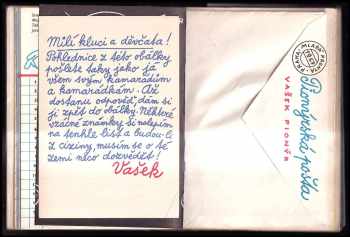 Milí kluci a děvčata!
Pohlednice z této obálky
pošlete taky jako já
všem svým kamarádům
a kamarádkám. Až
dostanu odpověď, dám si
ji zpět do obálky. Některé
vzácné známky si nalepím
na tenhle list a budou-li
z ciziny, musím se o té
zemi něco dozvědět!
Vašek
Pionýrská pošta
VAŠEK PIONÝR
MLADÁ FRONTA